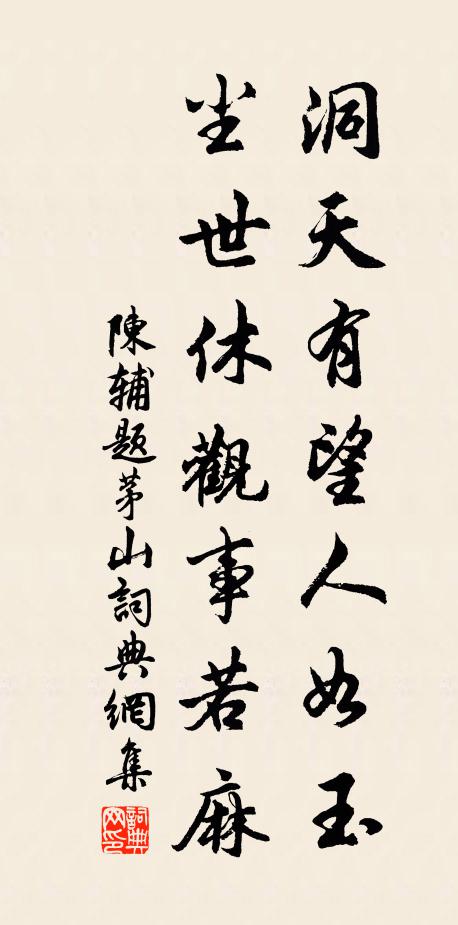 洞天有望人如玉
尘世休觀事若麻
陳輔题茅山詞典網集
詞典
网印